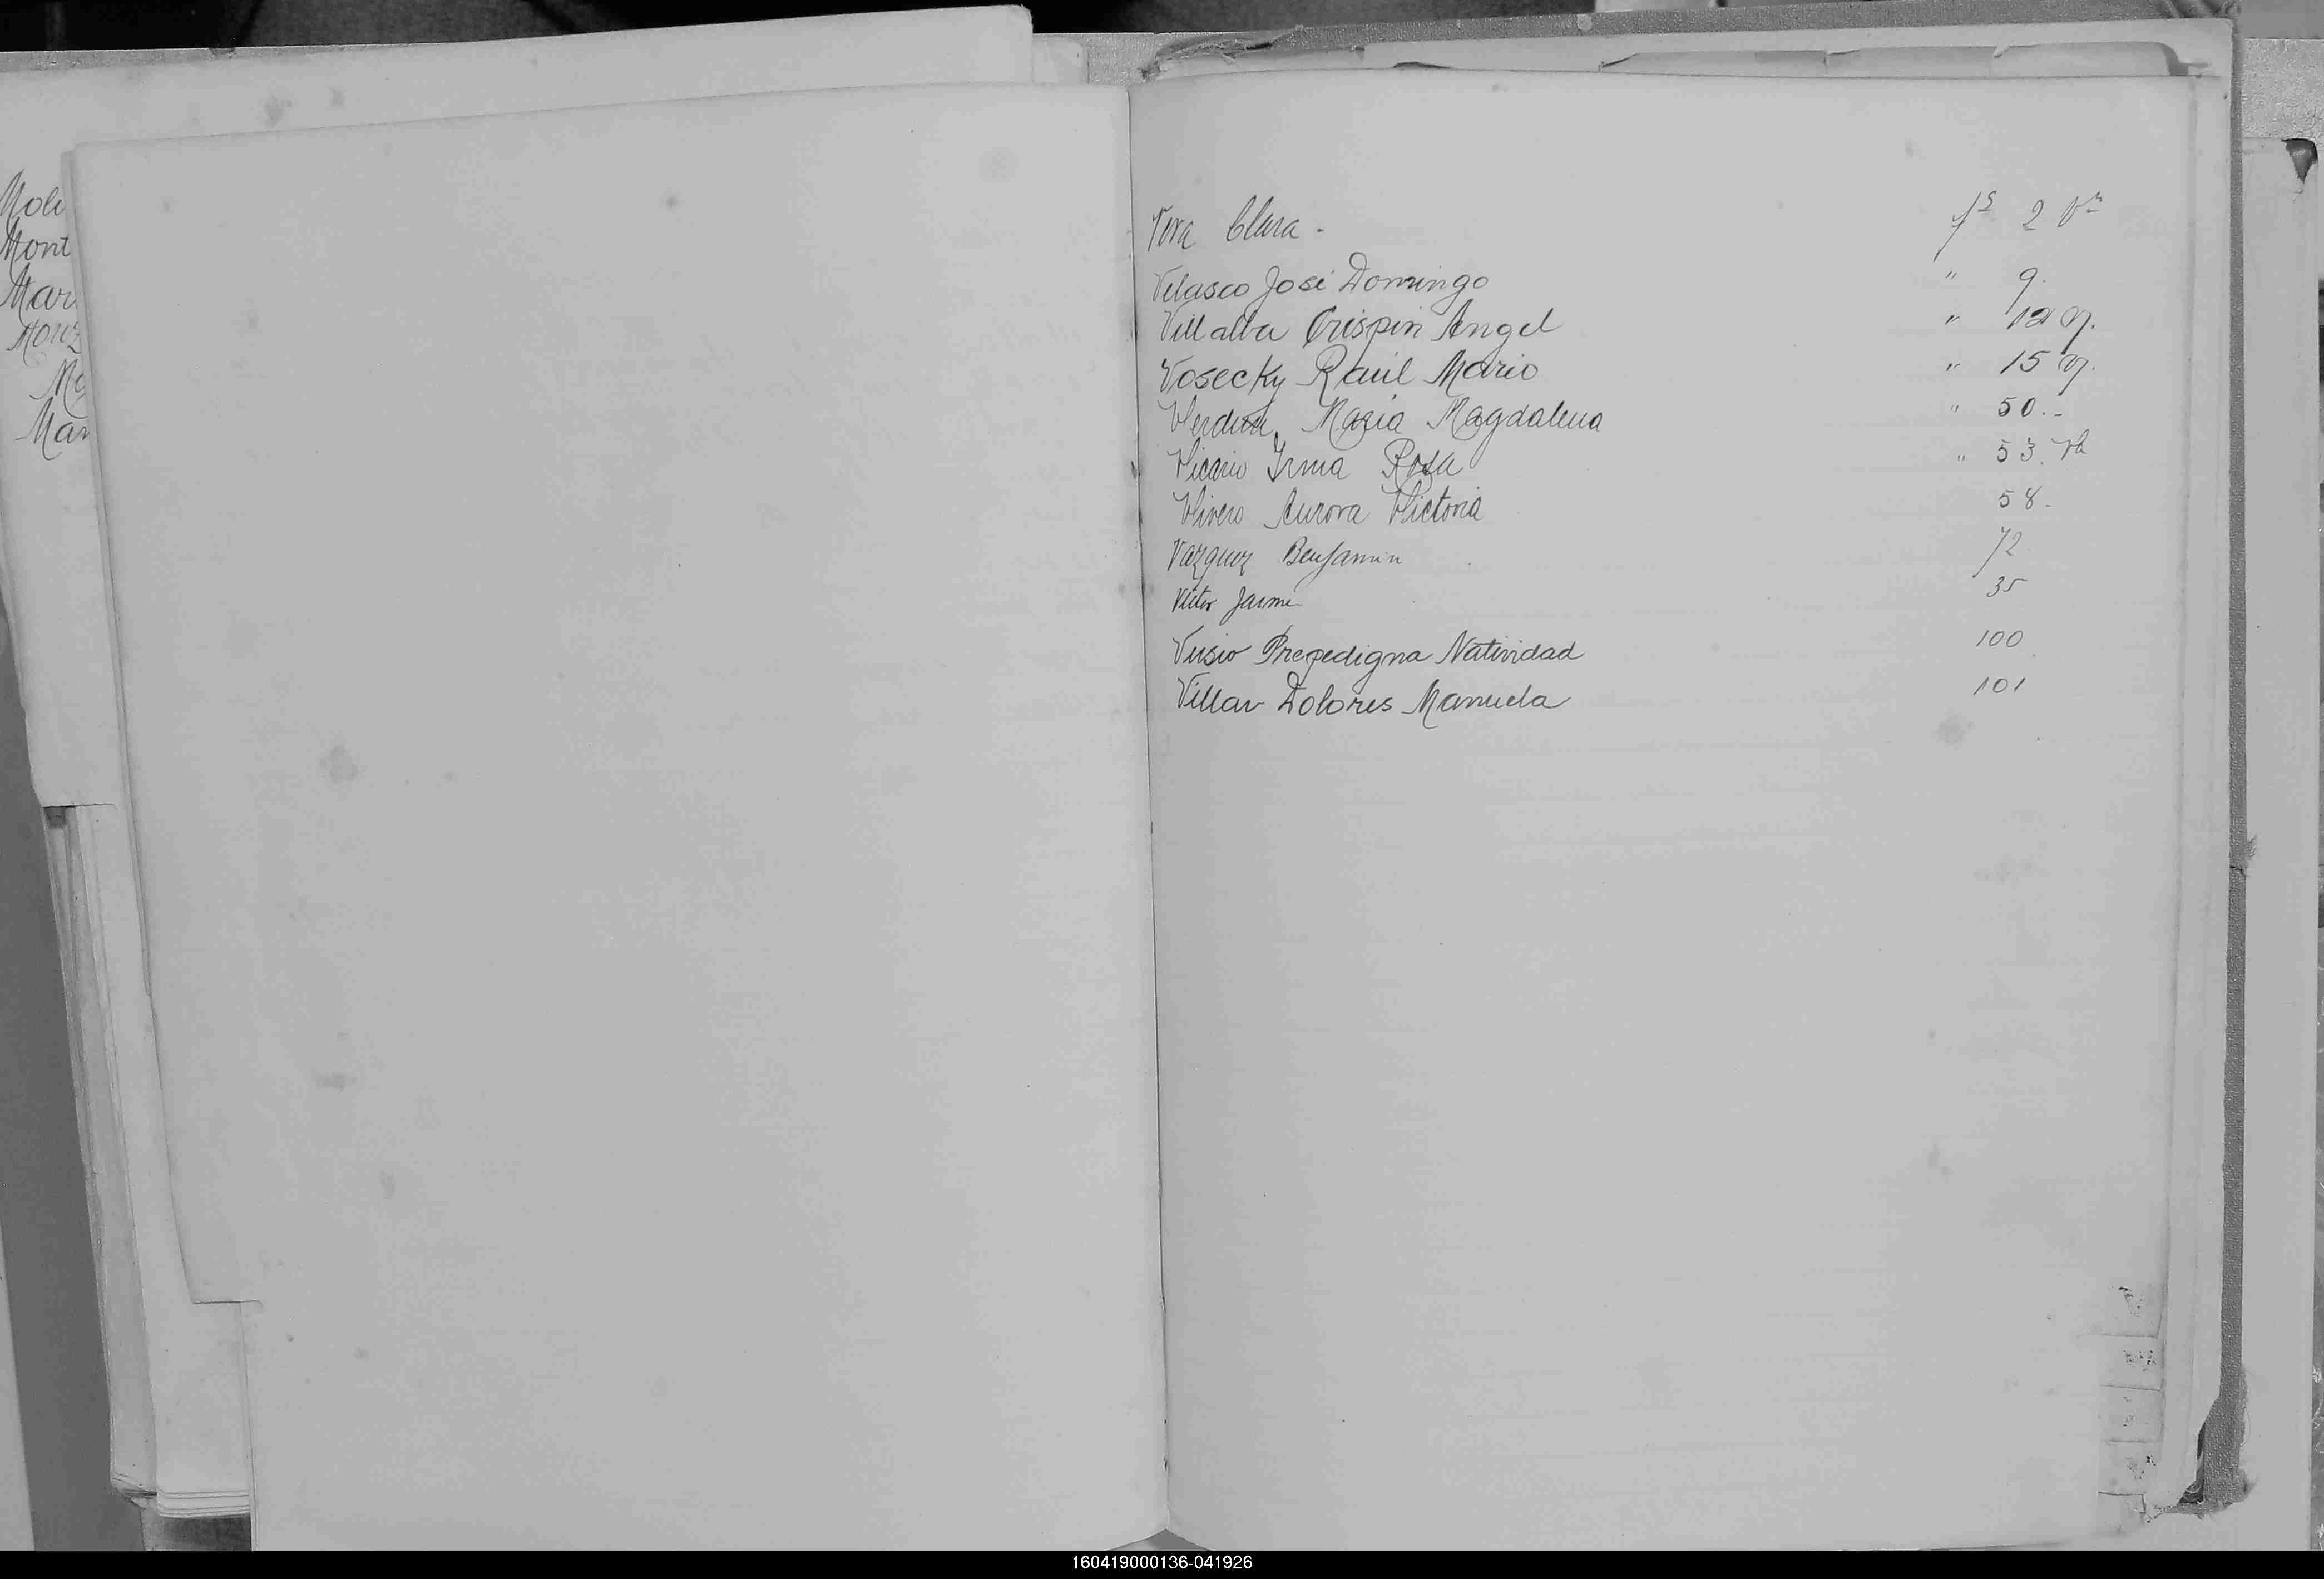 Moli
Mont
Mar
Monz
Me
Man
Vera Clara. fs 2 va
Velasco José Domingo " 9.
Villalba Crispin Angel " 12 v.
Vosecky Raúl Mario " 15 v.
Verdun, Maria Magdalena " 50.-
Vicario Irma Rosa " 53. va
Vivero Aurora Victoria 58-
Vazquez Benjamin 72
Jaime 35
Natividad 100
Villar Dolores Manuela 101
160419000136-041926